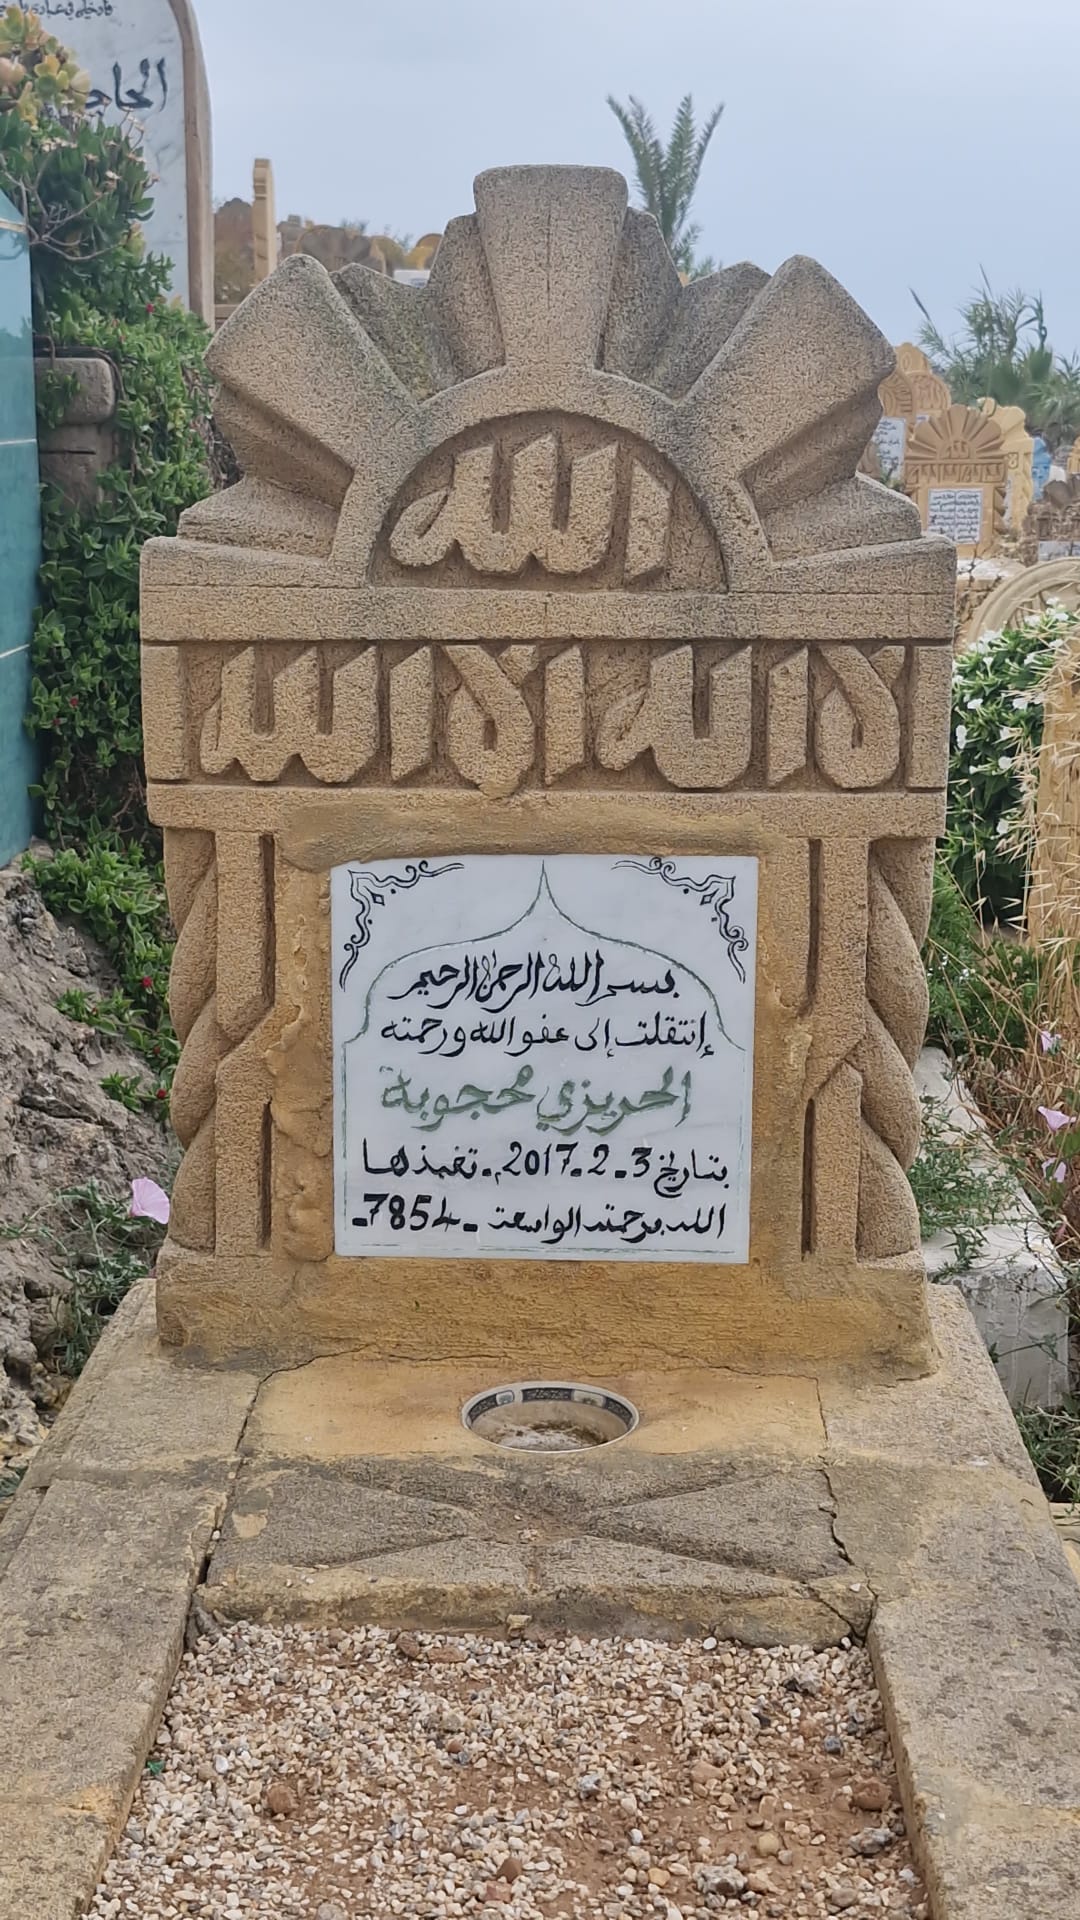 الحاج
الله
لا إله إلا الله
بسم الله الرحمن الرحيم
إنتقلت إلى عفو الله ورحمته
الحريزي محجوبة
بتاريخ 3-2-2017م- تغمذها
الله برحمته الواسعة -7854-